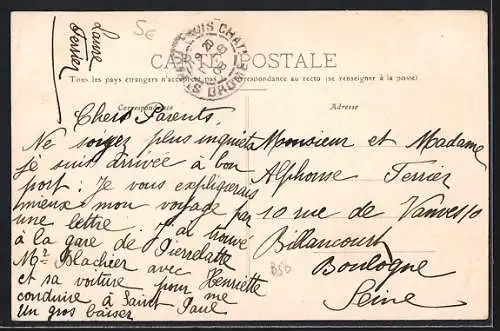 Laure
Terrier
5€
CARTE POSTALE
Tous les pays étrangers n'acceptent pas la correspondance au recto (se renseigner à la poste)
Correspondance
Adresse
Chers Parents.
Ne soyez plus inquiets
je suis arrivée à bon
port. Je vous expliquerais
mieux mon voyage par
une lettre. J'ai trouvé
à la gare de Pierrelatte
Mr Blachier avec Henriette
et sa voiture pour me
conduire à Saint Paul
Un gros baiser
Monsieur et Madame
Alphonse Terrier
10 rue de Vanves 10
Billancourt
Boulogne
Seine
B50